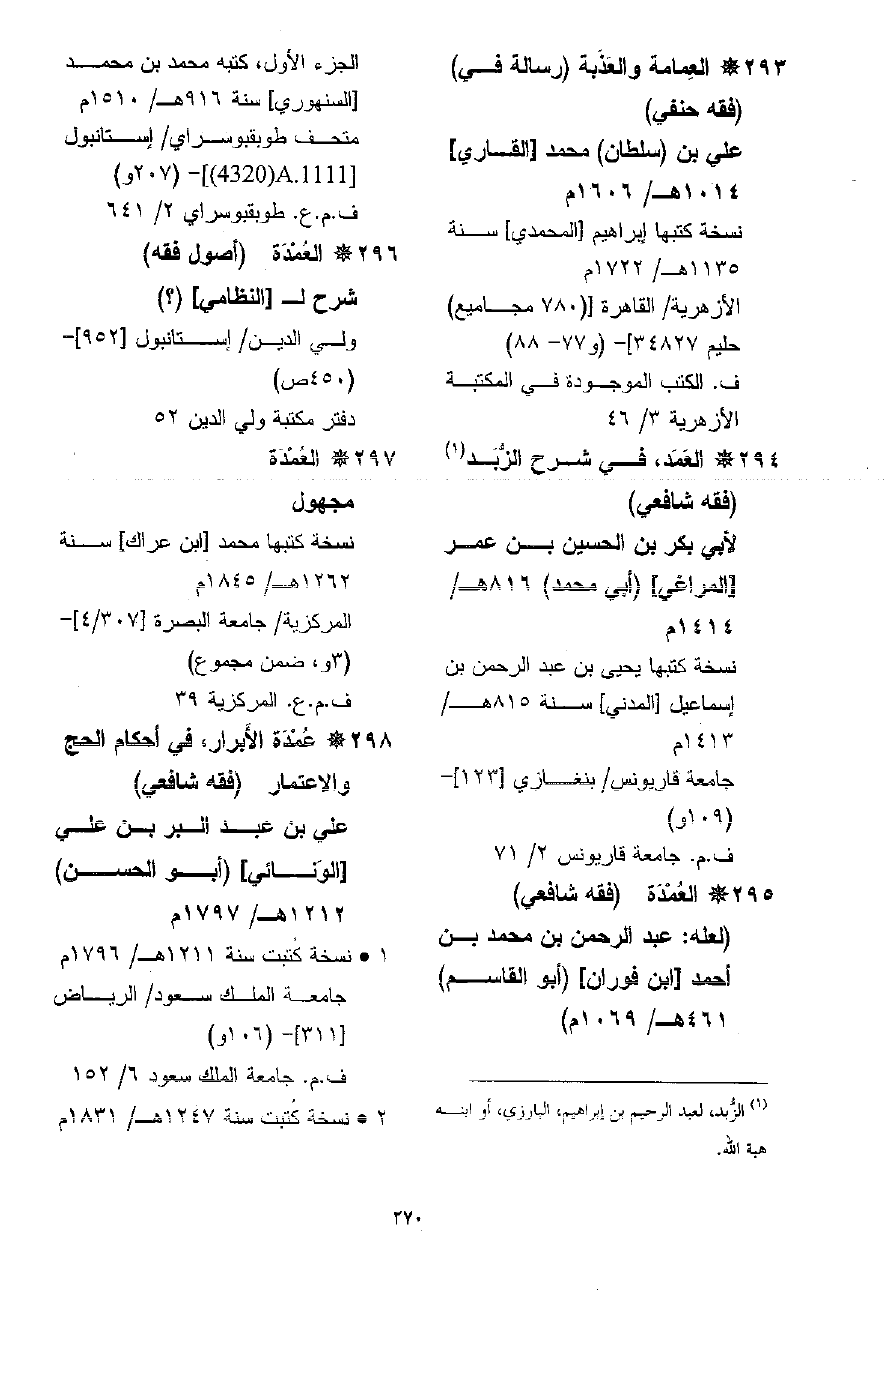 ٢٩٣* العِمامة والعَذَبة (رسالة في)
(فقه حنفي)
علي بن (سلطان) محمد [القاري]
١٠١٤هـ/ ١٦٠٦م
نسخة كتبها إبراهيم [المحمدي] سنة
١١٣٥هـ/ ١٧٢٢م
الأزهرية/ القاهرة [(٧٨٠ مجاميع)
حليم ٣٤٨٢٧]- (و٧٧- ٨٨)
ف. الكتب الموجودة في المكتبة
الأزهرية ٣/ ٤٦
٢٩٤* العَمَد، في شرح الزُّبَد(١)
(فقه شافعي)
لأبي بكر بن الحسين بن عمر
[المراغي] (أبي محمد) ٨١٦هـ/
١٤١٤م
نسخة كتبها يحيى بن عبد الرحمن بن
إسماعيل [المدني] سنة ٨١٥هـ/
١٤١٣م
جامعة قاريونس/ بنغازي [١٢٣]-
(١٠٩و)
ف.م. جامعة قاريونس ٢/ ٧١
٢٩٥* العُمْدَة (فقه شافعي)
(لعله: عبد الرحمن بن محمد بن
أحمد [ابن فوران] (أبو القاسم)
٤٦١هـ/ ١٠٦٩م)
(١) الزُّبد، لعبد الرحيم بن إبراهيم، البارزي، أو ابنه
هبة الله.
الجزء الأول، كتبه محمد بن محمد
[السنهوري] سنة ٩١٦هـ/ ١٥١٠م
متحف طوبقبوسراي/ إستانبول
[A.1111(4320)]- (٢٠٧و)
ف.م.ع. طوبقبوسراي ٢/ ٦٤١
٢٩٦* العُمْدَة (أصول فقه)
شرح لـ [النظامي] (؟)
ولي الدين/ إستانبول [٩٥٢]-
(٤٥٠ص)
دفتر مكتبة ولي الدين ٥٢
٢٩٧* العُمْدَة
مجهول
نسخة كتبها محمد [ابن عراك] سنة
١٢٦٢هـ/ ١٨٤٥م
المركزية/ جامعة البصرة [٤/٣٠٧]-
(٣و، ضمن مجموع)
ف.م.ع. المركزية ٣٩
٢٩٨* عُمْدَة الأبرار، في أحكام الحج
والاعتمار (فقه شافعي)
علي بن عبد البر بن علي
[الوَنَائي] (أبو الحسن)
١٢١٢هـ/ ١٧٩٧م
١ • نسخة كُتبت سنة ١٢١١هـ/ ١٧٩٦م
جامعة الملك سعود/ الرياض
[٣١١]- (١٠٦و)
ف.م. جامعة الملك سعود ٦/ ١٥٢
٢ • نسخة كُتبت سنة ١٢٤٧هـ/ ١٨٣١م
٢٧٠